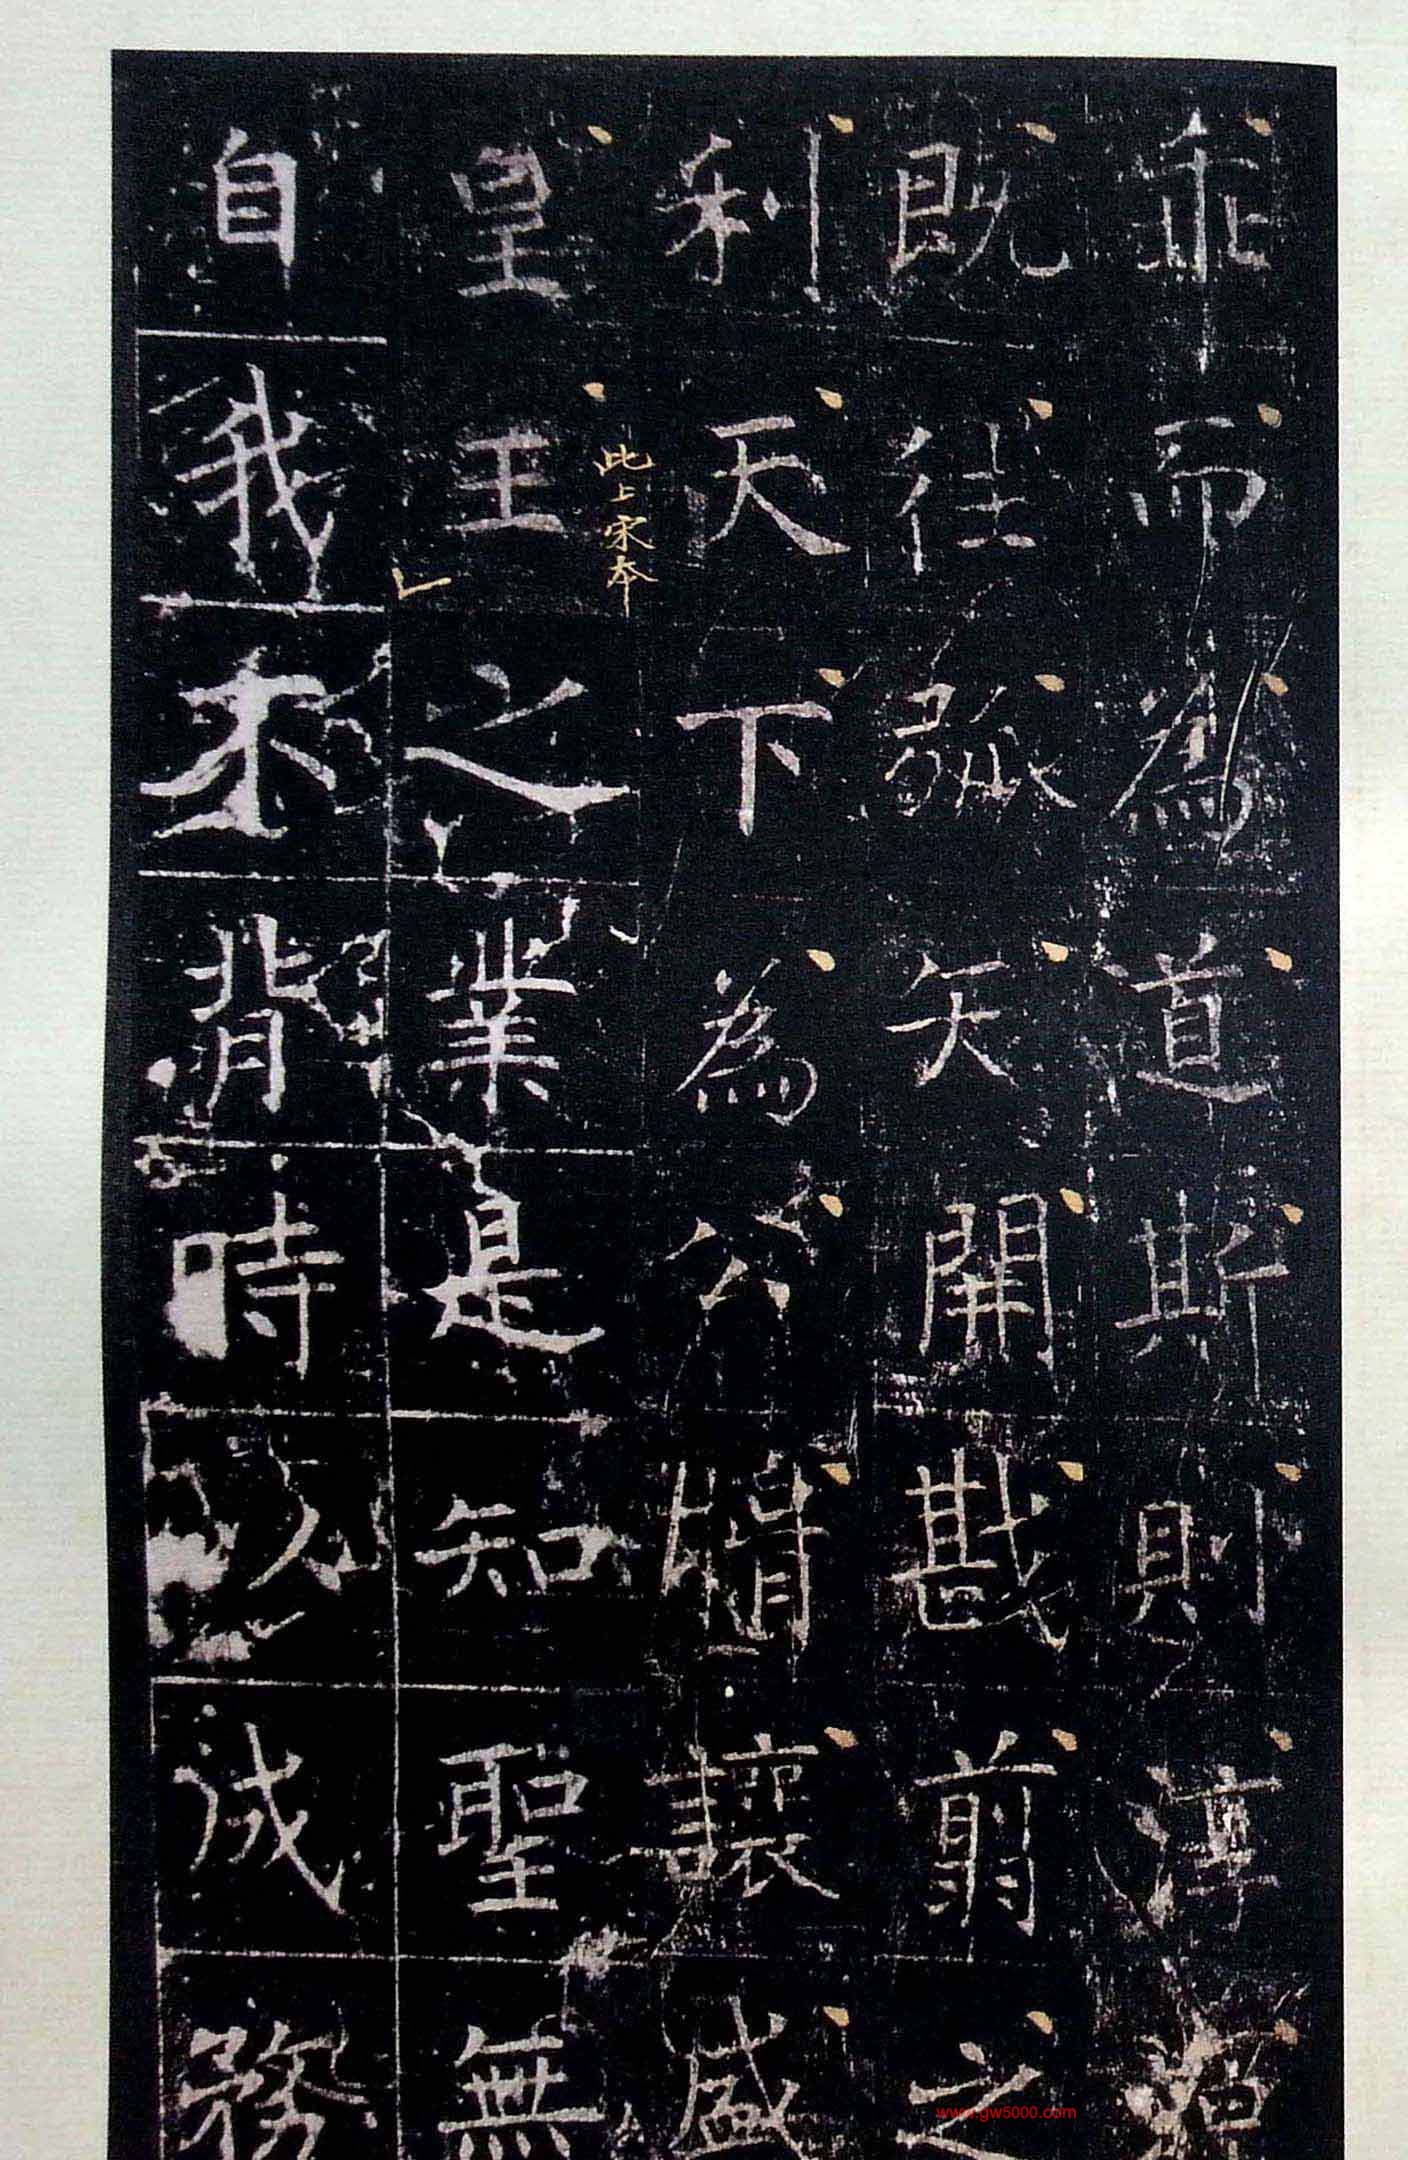 乖而為道斯則淳源
既往弧矢開戡翦之
利天下為公揖讓盛
此上宋本
皇王之業是知聖無
自我不背時以成務
www.gw5000.com